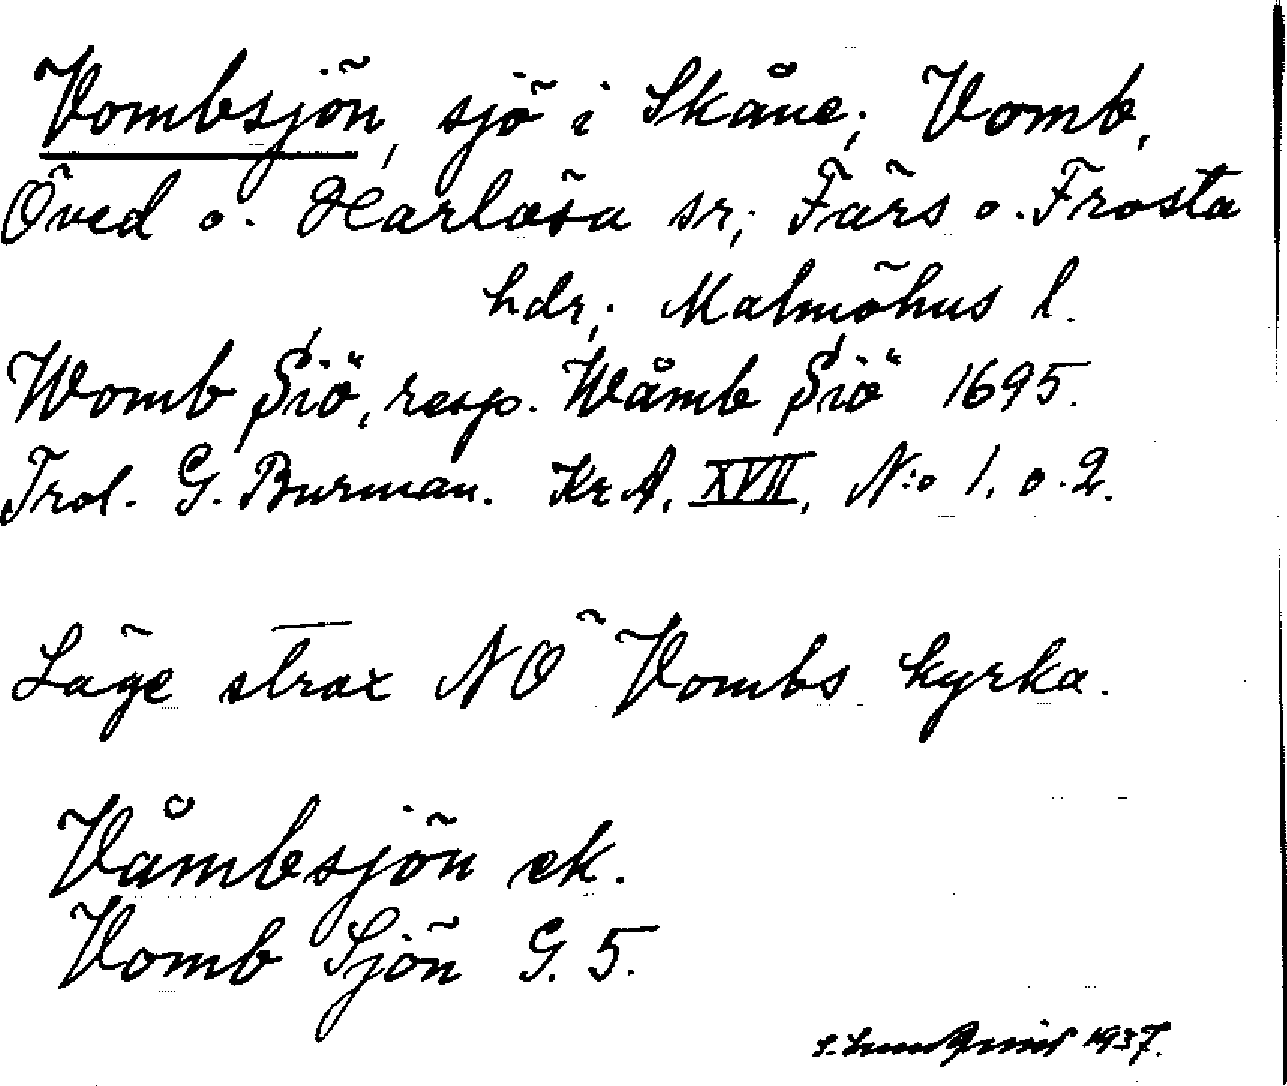 Vombsjön, sjö i Skåne; Vomb,
Öved o. Harlösa sr; Färs o. Frosta
hdr; Malmöhus l.
Womb Siö, resp. Wåmb Siö 1695.
Trol. G. Burman. KrA, XVII, N:o 1. o. 2.
Läge strax NO Vombs kyrka.
Våmbsjön ek.
Vomb Sjön G. 5.
1937.